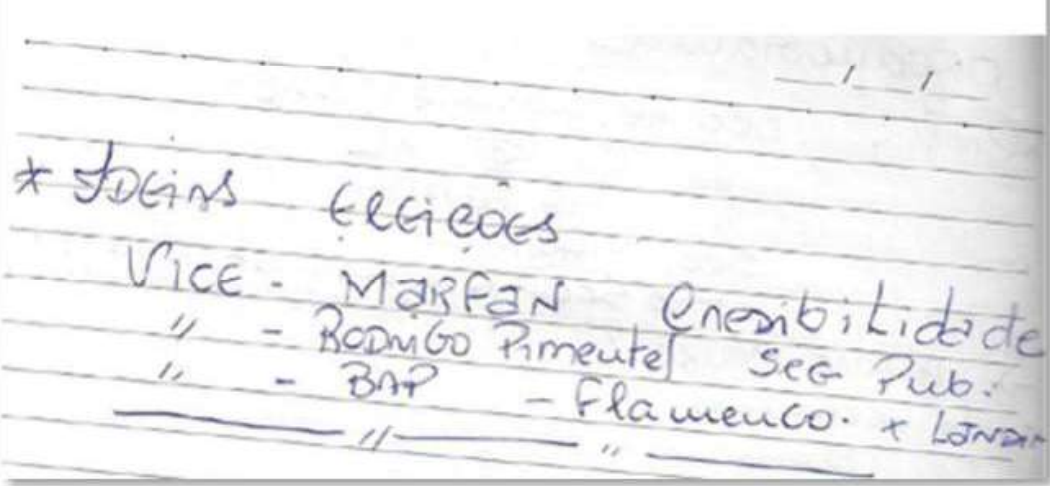 / /
* IDEIAS ELEIÇÕES
VICE - MARFAN Credibilidade
" - RODRIGO Pimentel Seg Pub.
" - BAP - Flamengo. x LANDIM
" "